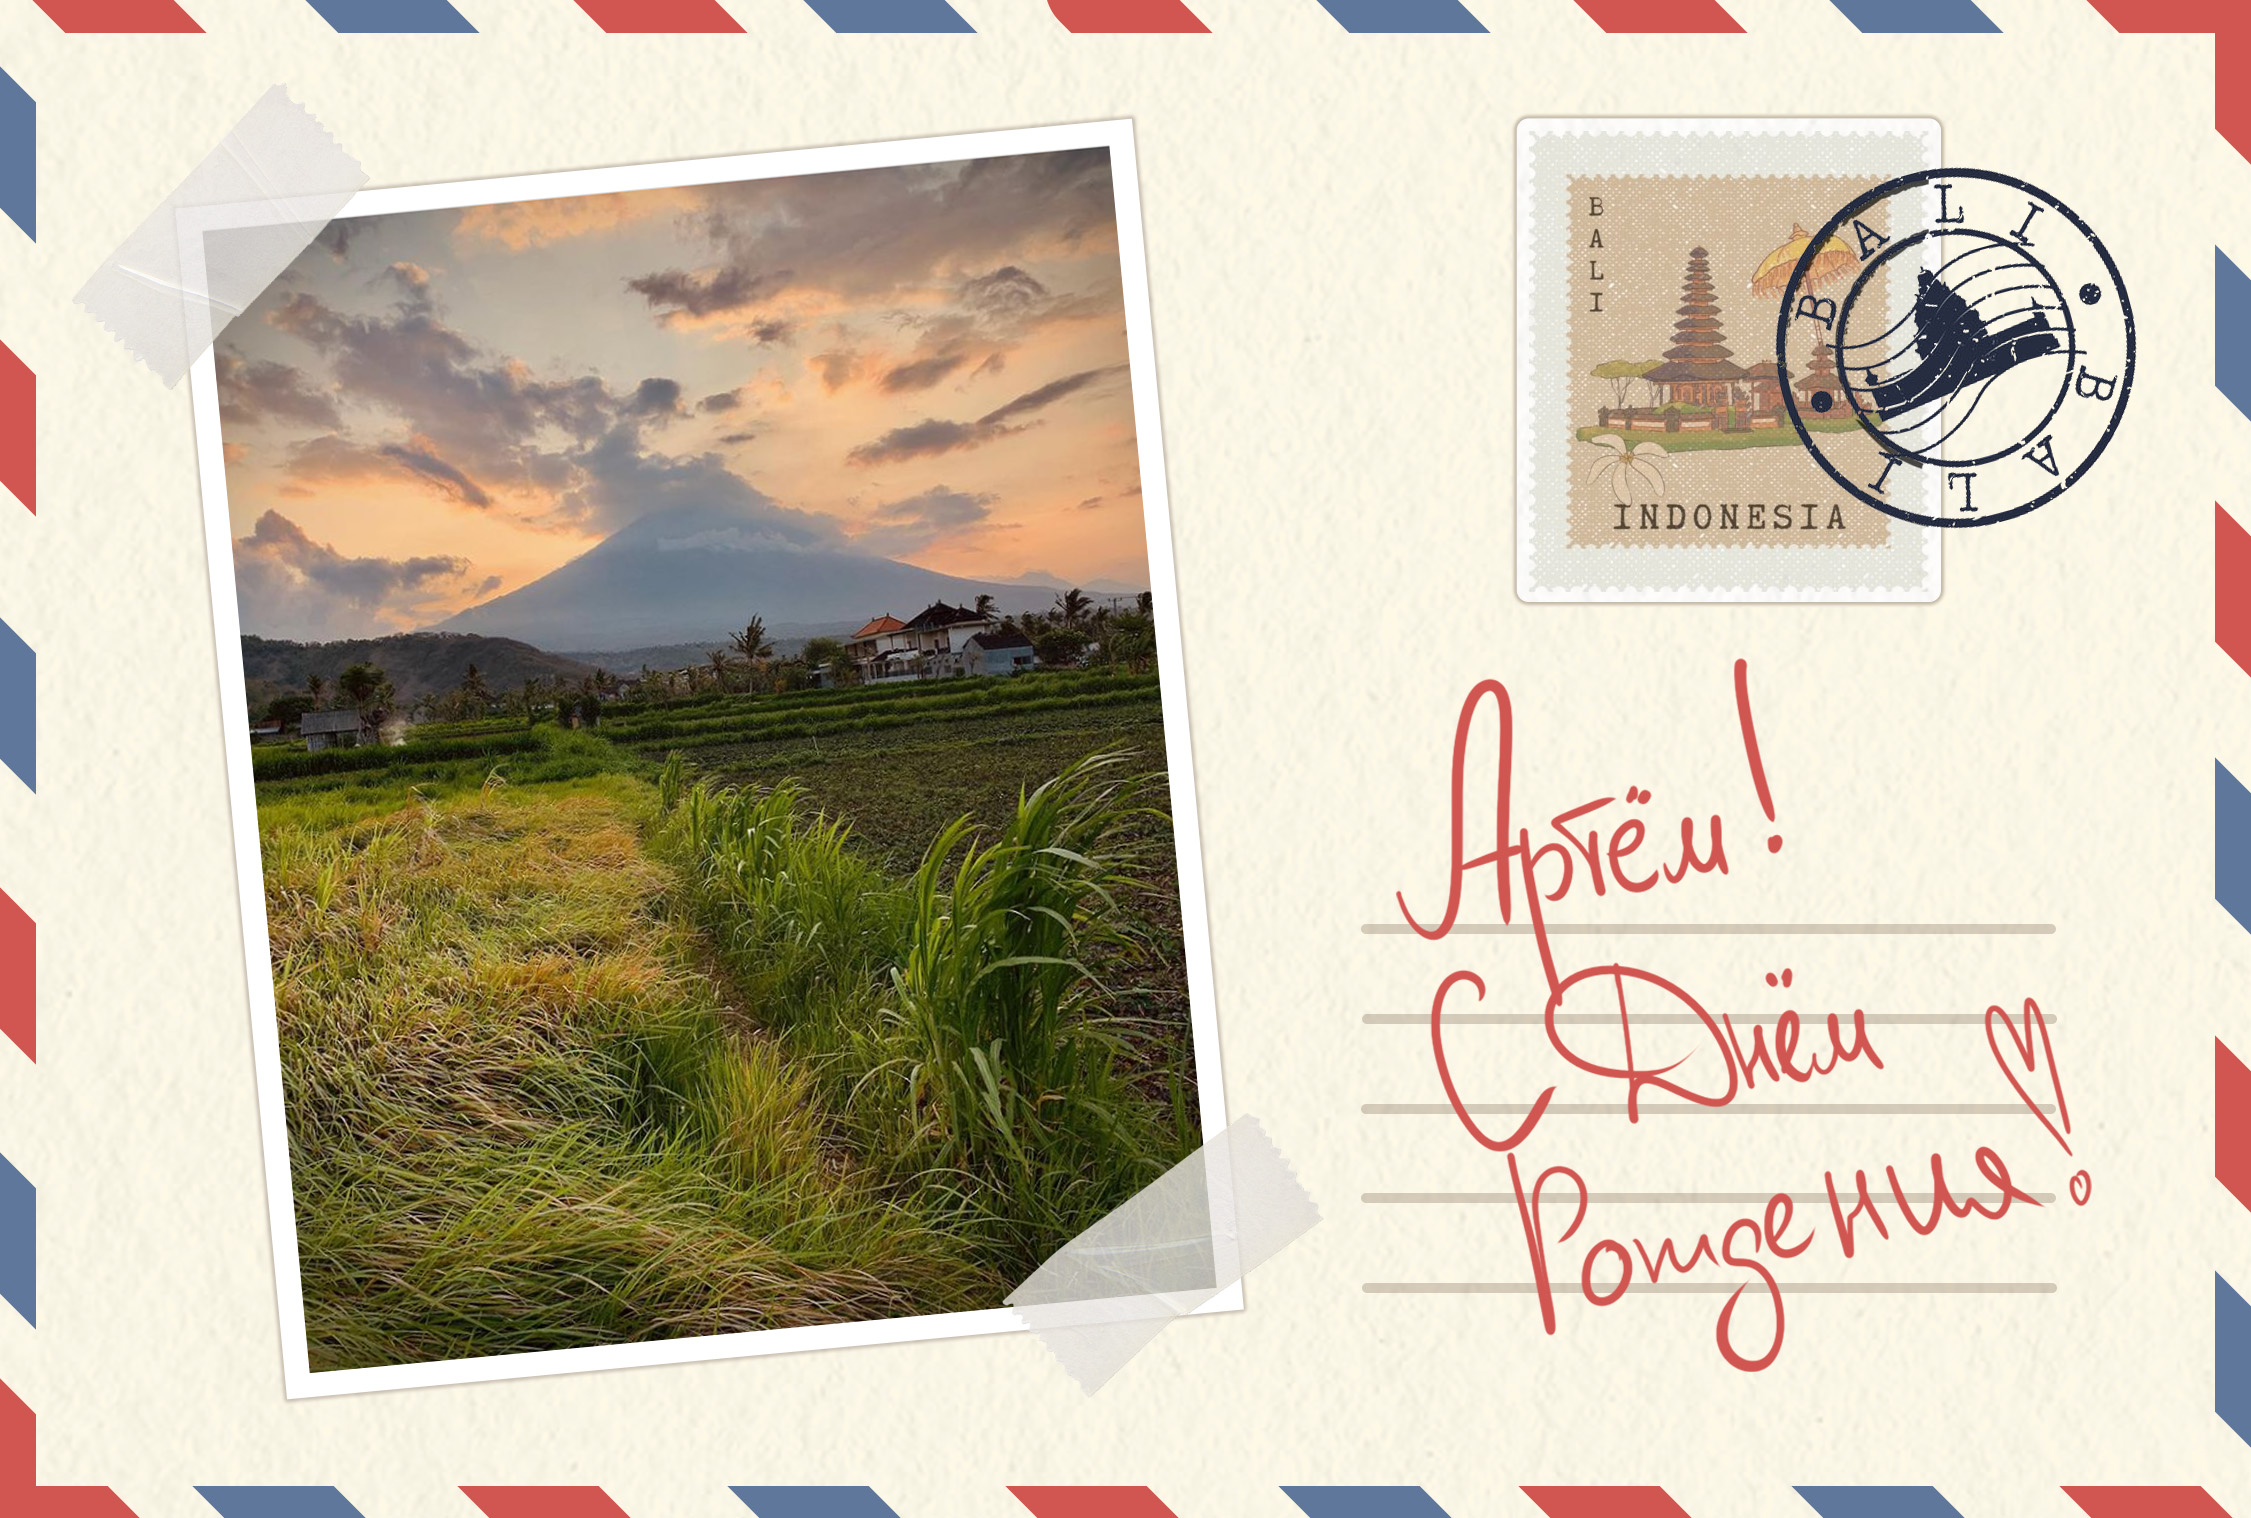 BALI
INDONESIA
BALI
BALI
Артём!
С Днём
Рождения!